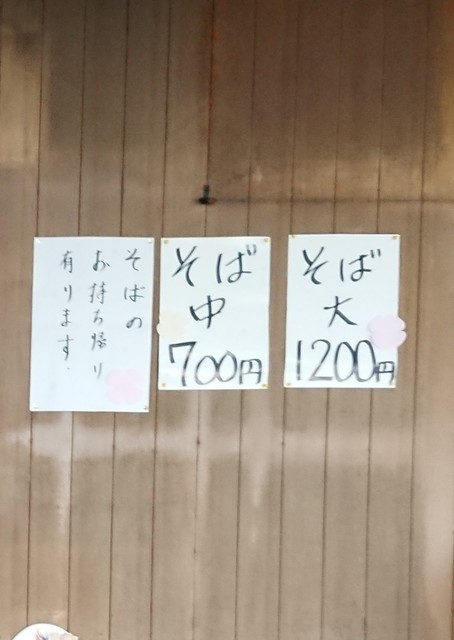 そばの
お持ち帰り
有ります.
そば
中
700円
そば
大
1200円